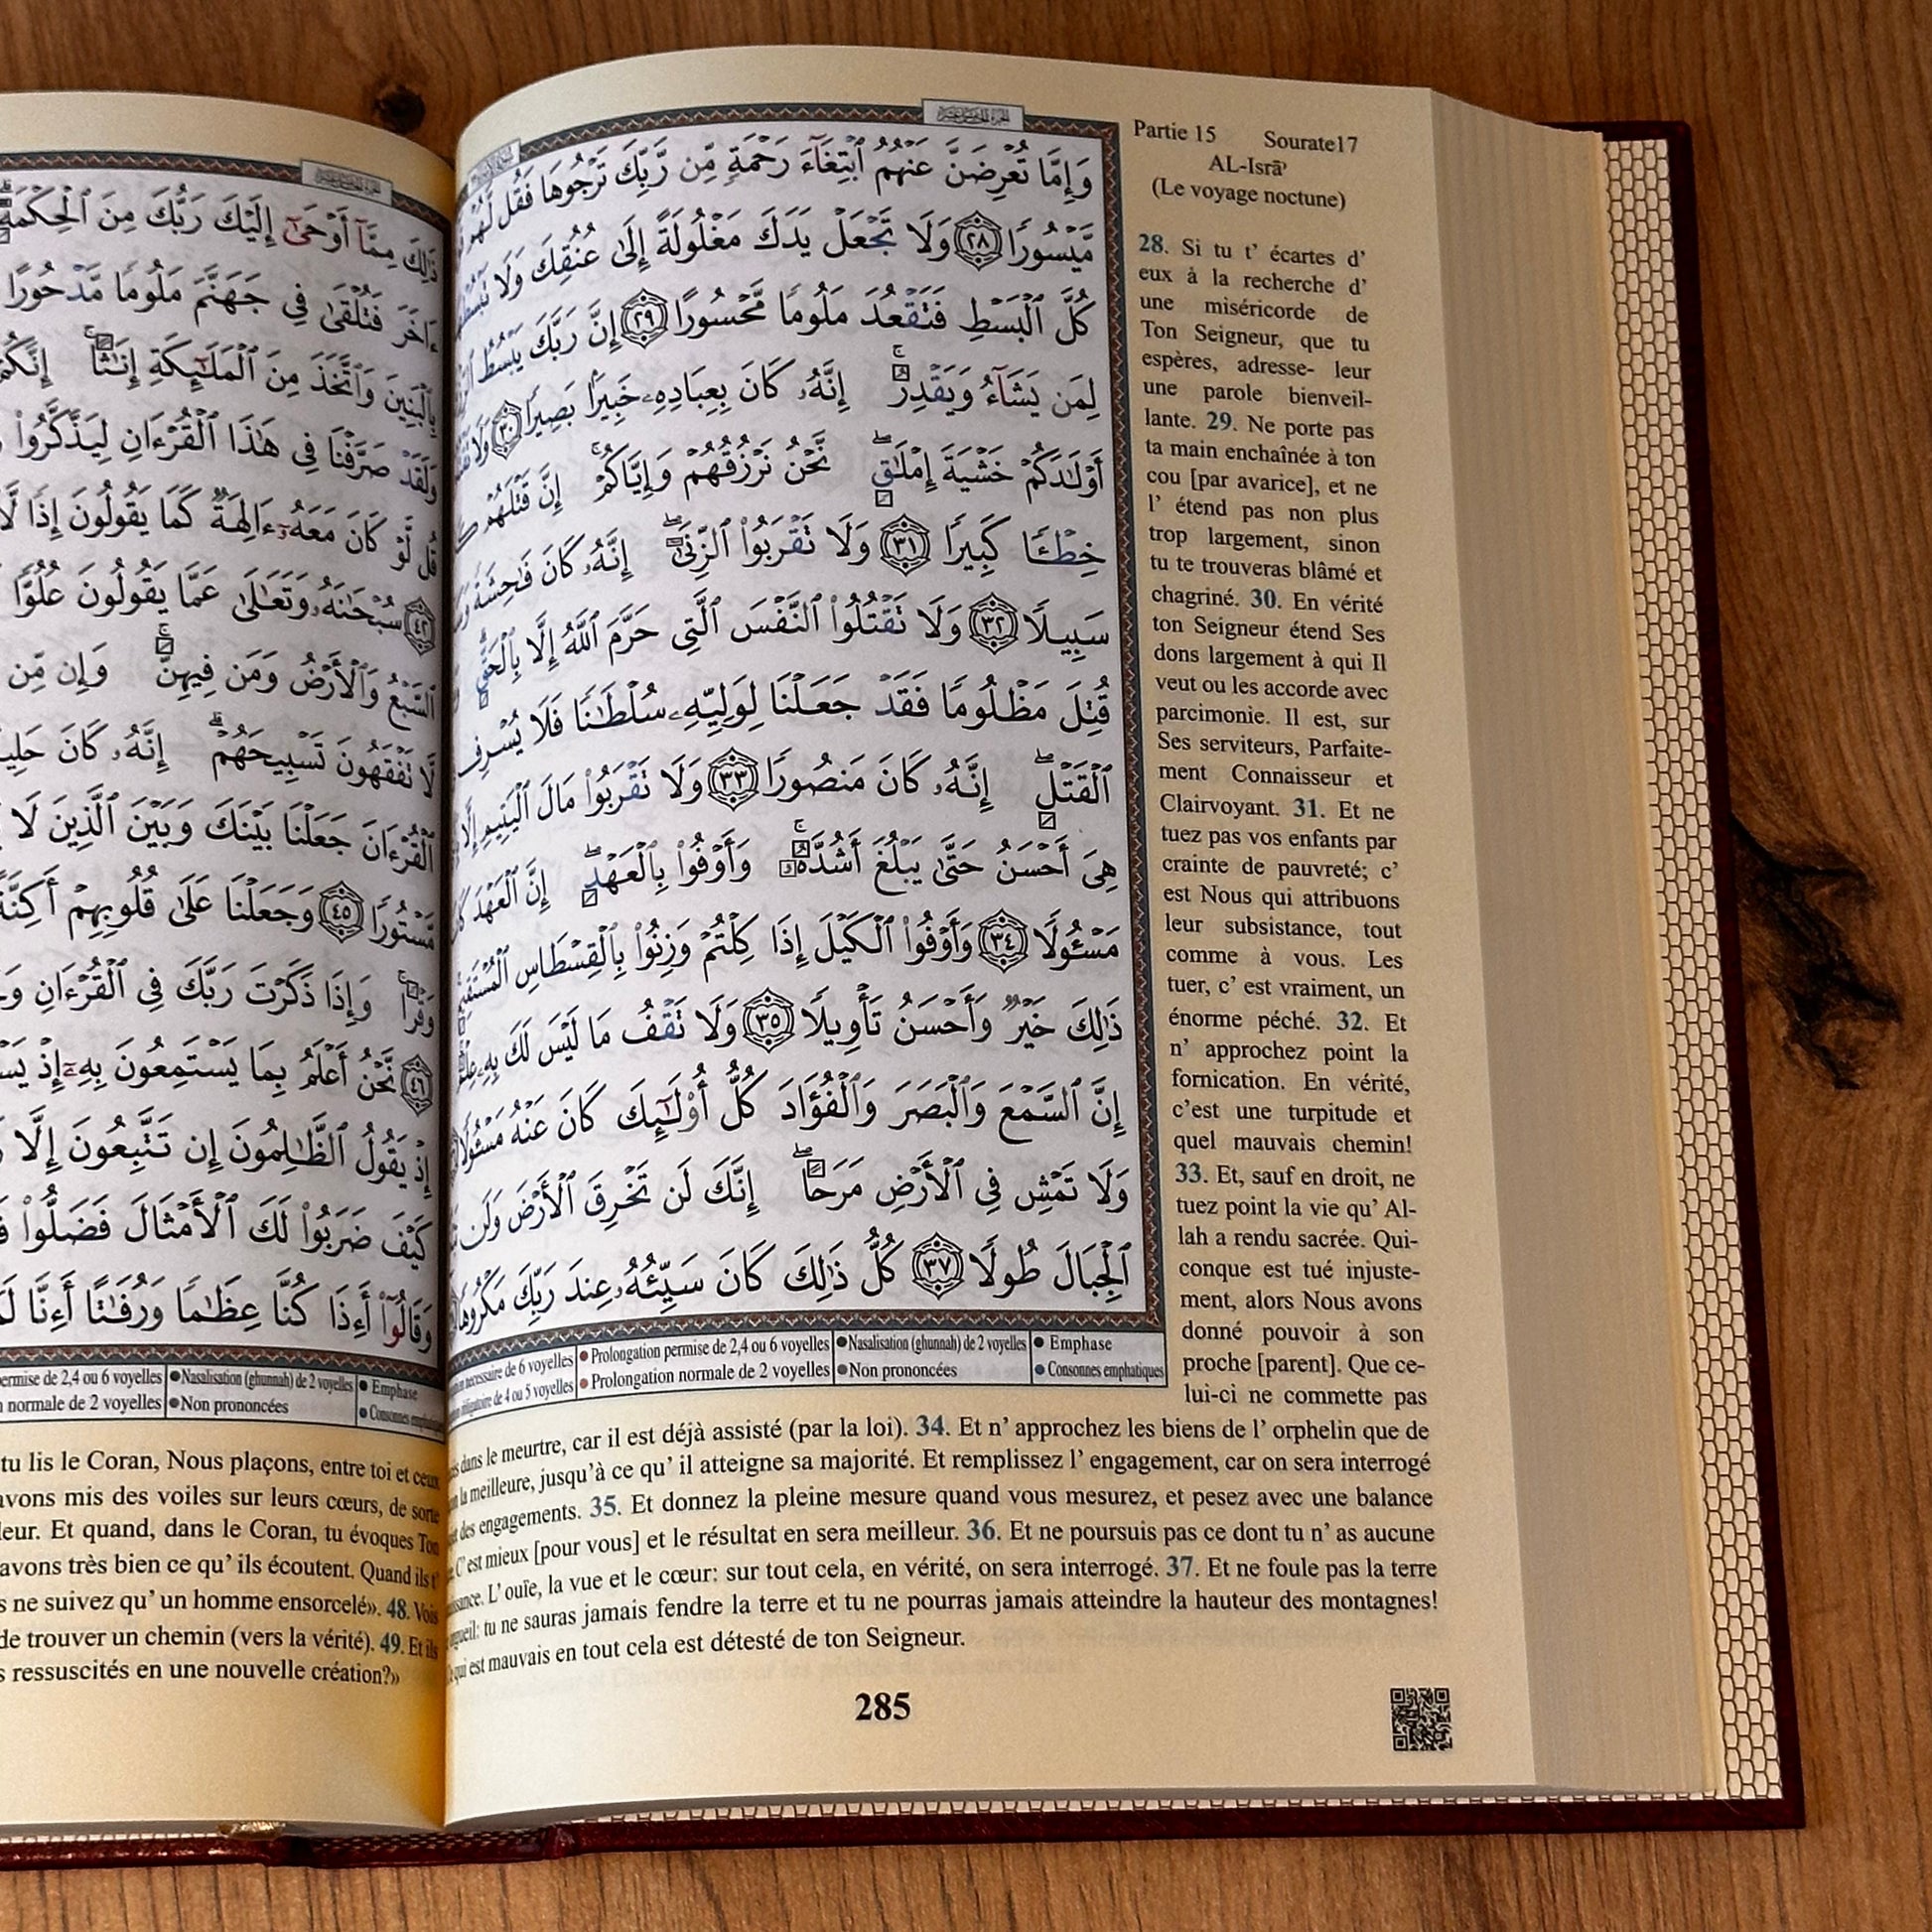 وَإِمَّا تُعْرِضَنَّ عَنْهُمُ ٱبْتِغَآءَ رَحْمَةٍ مِّن رَّبِّكَ تَرْجُوهَا فَقُل لَّهُمْ
مَّيْسُورًا ٢٨ وَلَا تَجْعَلْ يَدَكَ مَغْلُولَةً إِلَىٰ عُنُقِكَ وَلَا
كُلَّ ٱلْبَسْطِ فَتَقْعُدَ مَلُومًا مَّحْسُورًا ٢٩ إِنَّ رَبَّكَ يَبْسُطُ
لِمَن يَشَآءُ وَيَقْدِرُ ۚ إِنَّهُۥ كَانَ بِعِبَادِهِۦ خَبِيرًۢا بَصِيرًا ٣٠
أَوْلَـٰدَكُمْ خَشْيَةَ إِمْلَـٰقٍ ۖ نَّحْنُ نَرْزُقُهُمْ وَإِيَّاكُمْ ۚ إِنَّ قَتْلَهُمْ
خِطْـًٔا كَبِيرًا ٣١ وَلَا تَقْرَبُوا۟ ٱلزِّنَىٰٓ ۖ إِنَّهُۥ كَانَ فَـٰحِشَةً
سَبِيلًا ٣٢ وَلَا تَقْتُلُوا۟ ٱلنَّفْسَ ٱلَّتِى حَرَّمَ ٱللَّهُ إِلَّا بِٱلْحَقِّ ۗ
قُتِلَ مَظْلُومًا فَقَدْ جَعَلْنَا لِوَلِيِّهِۦ سُلْطَـٰنًا فَلَا يُسْرِف
ٱلْقَتْلِ ۖ إِنَّهُۥ كَانَ مَنصُورًا ٣٣ وَلَا تَقْرَبُوا۟ مَالَ ٱلْيَتِيمِ إِلَّا
هِىَ أَحْسَنُ حَتَّىٰ يَبْلُغَ أَشُدَّهُۥ ۚ وَأَوْفُوا۟ بِٱلْعَهْدِ ۖ إِنَّ ٱلْعَهْدَ
مَسْـُٔولًا ٣٤ وَأَوْفُوا۟ ٱلْكَيْلَ إِذَا كِلْتُمْ وَزِنُوا۟ بِٱلْقِسْطَاسِ ٱلْمُسْتَقِيمِ
ذَٰلِكَ خَيْرٌ وَأَحْسَنُ تَأْوِيلًا ٣٥ وَلَا تَقْفُ مَا لَيْسَ لَكَ بِهِۦ
إِنَّ ٱلسَّمْعَ وَٱلْبَصَرَ وَٱلْفُؤَادَ كُلُّ أُو۟لَـٰٓئِكَ كَانَ عَنْهُ مَسْـُٔولًا
وَلَا تَمْشِ فِى ٱلْأَرْضِ مَرَحًا ۖ إِنَّكَ لَن تَخْرِقَ ٱلْأَرْضَ وَلَن
ٱلْجِبَالَ طُولًا ٣٧ كُلُّ ذَٰلِكَ كَانَ سَيِّئُهُۥ عِندَ رَبِّكَ مَكْرُوهًا
nécessaire de 6 voyelles ● Prolongation permise de 2,4 ou 6 voyelles ● Nasalisation (ghunnah) de 2 voyelles ● Emphase
obligatoire de 4 ou 5 voyelles ● Prolongation normale de 2 voyelles ● Non prononcées ● Consonnes emphatiques
Partie 15 Sourate17
AL-Isrāʾ
(Le voyage noctune)
28. Si tu t’ écartes d’
eux à la recherche d’
une miséricorde de
Ton Seigneur, que tu
espères, adresse- leur
une parole bienveil-
lante. 29. Ne porte pas
ta main enchaînée à ton
cou [par avarice], et ne
l’ étend pas non plus
trop largement, sinon
tu te trouveras blâmé et
chagriné. 30. En vérité
ton Seigneur étend Ses
dons largement à qui Il
veut ou les accorde avec
parcimonie. Il est, sur
Ses serviteurs, Parfaite-
ment Connaisseur et
Clairvoyant. 31. Et ne
tuez pas vos enfants par
crainte de pauvreté; c’
est Nous qui attribuons
leur subsistance, tout
comme à vous. Les
tuer, c’ est vraiment, un
énorme péché. 32. Et
n’ approchez point la
fornication. En vérité,
c’est une turpitude et
quel mauvais chemin!
33. Et, sauf en droit, ne
tuez point la vie qu’ Al-
lah a rendu sacrée. Qui-
conque est tué injuste-
ment, alors Nous avons
donné pouvoir à son
proche [parent]. Que ce-
lui-ci ne commette pas
dans le meurtre, car il est déjà assisté (par la loi). 34. Et n’ approchez les biens de l’ orphelin que de
la meilleure, jusqu’à ce qu’ il atteigne sa majorité. Et remplissez l’ engagement, car on sera interrogé
des engagements. 35. Et donnez la pleine mesure quand vous mesurez, et pesez avec une balance
C’ est mieux [pour vous] et le résultat en sera meilleur. 36. Et ne poursuis pas ce dont tu n’ as aucune
L’ ouïe, la vue et le cœur: sur tout cela, en vérité, on sera interrogé. 37. Et ne foule pas la terre
tu ne sauras jamais fendre la terre et tu ne pourras jamais atteindre la hauteur des montagnes!
qui est mauvais en tout cela est détesté de ton Seigneur.
285
ذَٰلِكَ مِمَّآ أَوْحَىٰٓ إِلَيْكَ رَبُّكَ مِنَ ٱلْحِكْمَةِ
ءَاخَرَ فَتُلْقَىٰ فِى جَهَنَّمَ مَلُومًا مَّدْحُورًا
بِٱلْبَنِينَ وَٱتَّخَذَ مِنَ ٱلْمَلَـٰٓئِكَةِ إِنَـٰثًا ۚ إِنَّكُمْ
وَلَقَدْ صَرَّفْنَا فِى هَـٰذَا ٱلْقُرْءَانِ لِيَذَّكَّرُوا۟
قُل لَّوْ كَانَ مَعَهُۥٓ ءَالِهَةٌ كَمَا يَقُولُونَ إِذًا
٤٢ سُبْحَـٰنَهُۥ وَتَعَـٰلَىٰ عَمَّا يَقُولُونَ عُلُوًّا
ٱلسَّبْعُ وَٱلْأَرْضُ وَمَن فِيهِنَّ ۚ وَإِن مِّن
لَّا تَفْقَهُونَ تَسْبِيحَهُمْ ۗ إِنَّهُۥ كَانَ
ٱلْقُرْءَانَ جَعَلْنَا بَيْنَكَ وَبَيْنَ ٱلَّذِينَ لَا
مَّسْتُورًا ٤٥ وَجَعَلْنَا عَلَىٰ قُلُوبِهِمْ أَكِنَّةً
وَقْرًا ۚ وَإِذَا ذَكَرْتَ رَبَّكَ فِى ٱلْقُرْءَانِ
٤٦ نَّحْنُ أَعْلَمُ بِمَا يَسْتَمِعُونَ بِهِۦٓ إِذْ
إِذْ يَقُولُ ٱلظَّـٰلِمُونَ إِن تَتَّبِعُونَ إِلَّا
كَيْفَ ضَرَبُوا۟ لَكَ ٱلْأَمْثَالَ فَضَلُّوا۟
وَقَالُوٓا۟ أَءِذَا كُنَّا عِظَـٰمًا وَرُفَـٰتًا أَءِنَّا
permise de 2,4 ou 6 voyelles ● Nasalisation (ghunnah) de 2 voyelles ● Emphase
normale de 2 voyelles ● Non prononcées ● Consonnes emphatiques
tu lis le Coran, Nous plaçons, entre toi et ceux
avons mis des voiles sur leurs cœurs, de sorte
Et quand, dans le Coran, tu évoques Ton
avons très bien ce qu’ ils écoutent. Quand ils t’
ne suivez qu’ un homme ensorcelé». 48. Vois
de trouver un chemin (vers la vérité). 49. Et ils
ressuscités en une nouvelle création?»